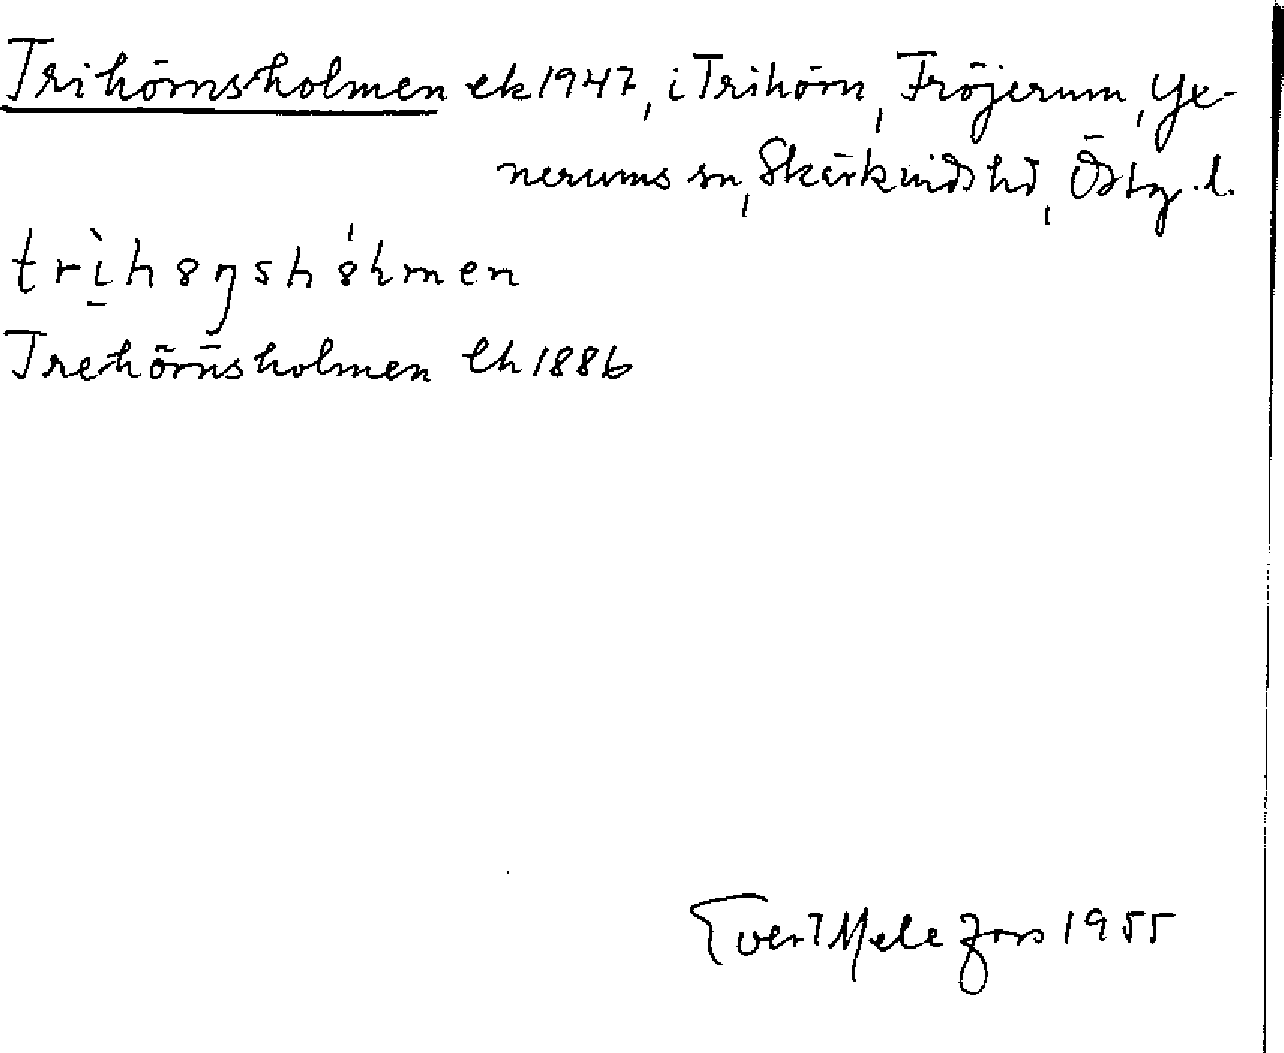 Trihörnsholmen ek 1947, i Trihörn, Fröjerum, Yx-
nerums sn, Skärkinds hd, Östg. l.
Trehörnsholmen Ek 1886
Evert Melefors 1955